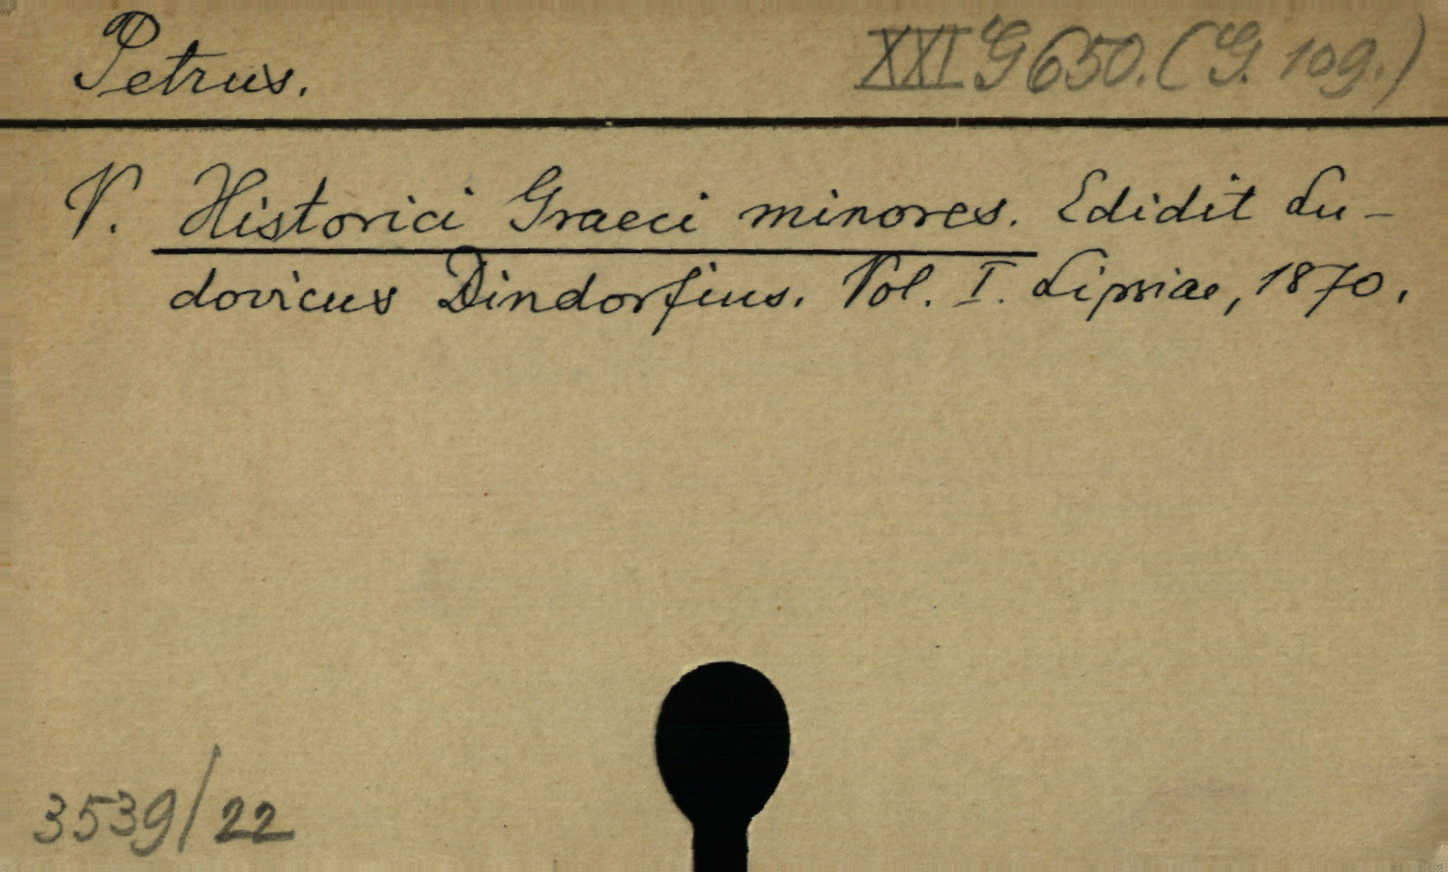 Petrus.
XXI G 650. (G. 109.)
V. Historici Graeci minores. Edidit Lu-
dovicus Dindorfius. Vol. I. Lipsiae, 1870.
3539/22